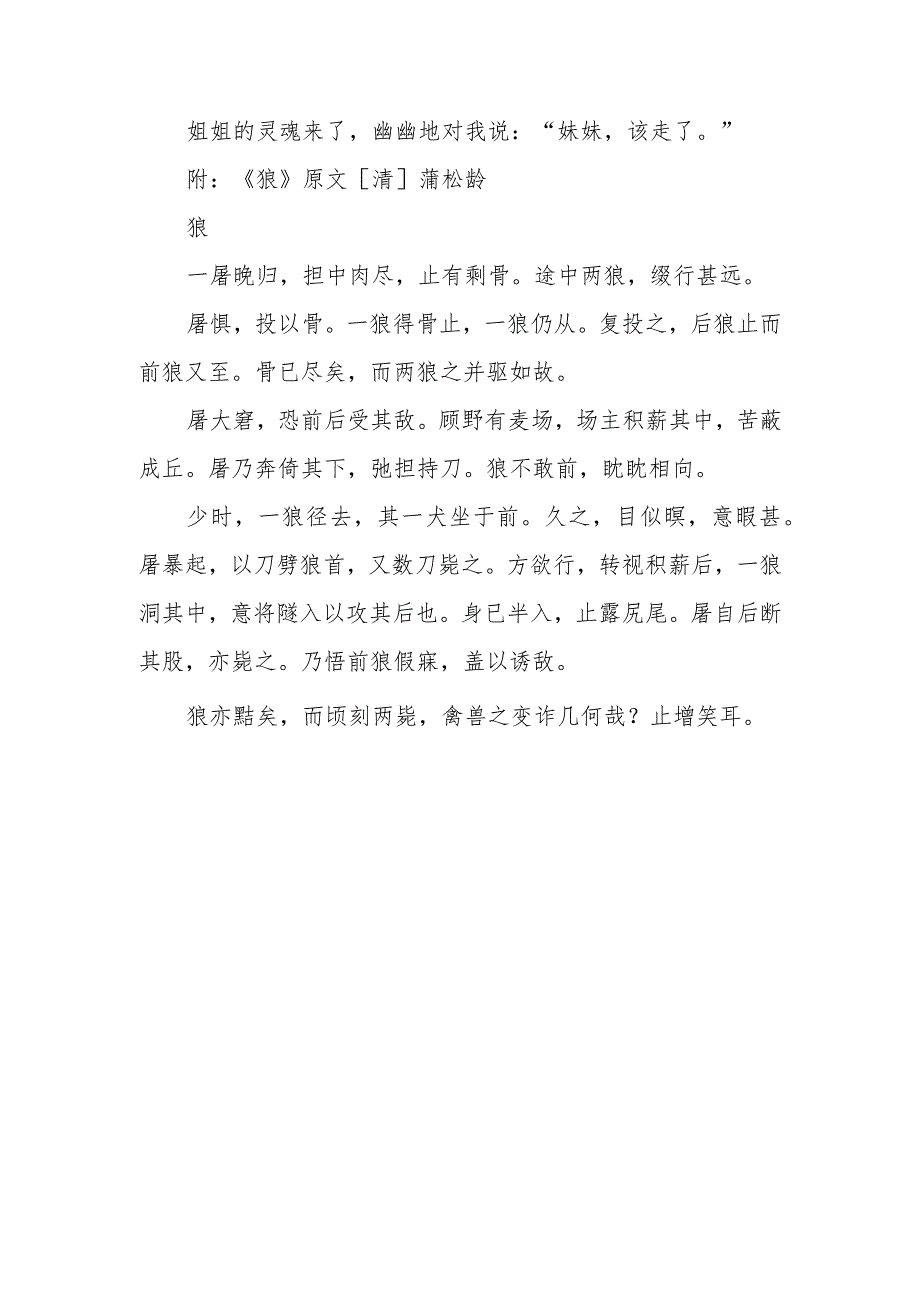 姐姐的灵魂来了，幽幽地对我说：“妹妹，该走了。”
附：《狼》原文［清］蒲松龄
狼
一屠晚归，担中肉尽，止有剩骨。途中两狼，缀行甚远。
屠惧，投以骨。一狼得骨止，一狼仍从。复投之，后狼止而
前狼又至。骨已尽矣，而两狼之并驱如故。
屠大窘，恐前后受其敌。顾野有麦场，场主积薪其中，苫蔽
成丘。屠乃奔倚其下，弛担持刀。狼不敢前，眈眈相向。
少时，一狼径去，其一犬坐于前。久之，目似暝，意暇甚。
屠暴起，以刀劈狼首，又数刀毙之。方欲行，转视积薪后，一狼
洞其中，意将隧入以攻其后也。身已半入，止露尻尾。屠自后断
其股，亦毙之。乃悟前狼假寐，盖以诱敌。
狼亦黠矣，而顷刻两毙，禽兽之变诈几何哉？止增笑耳。